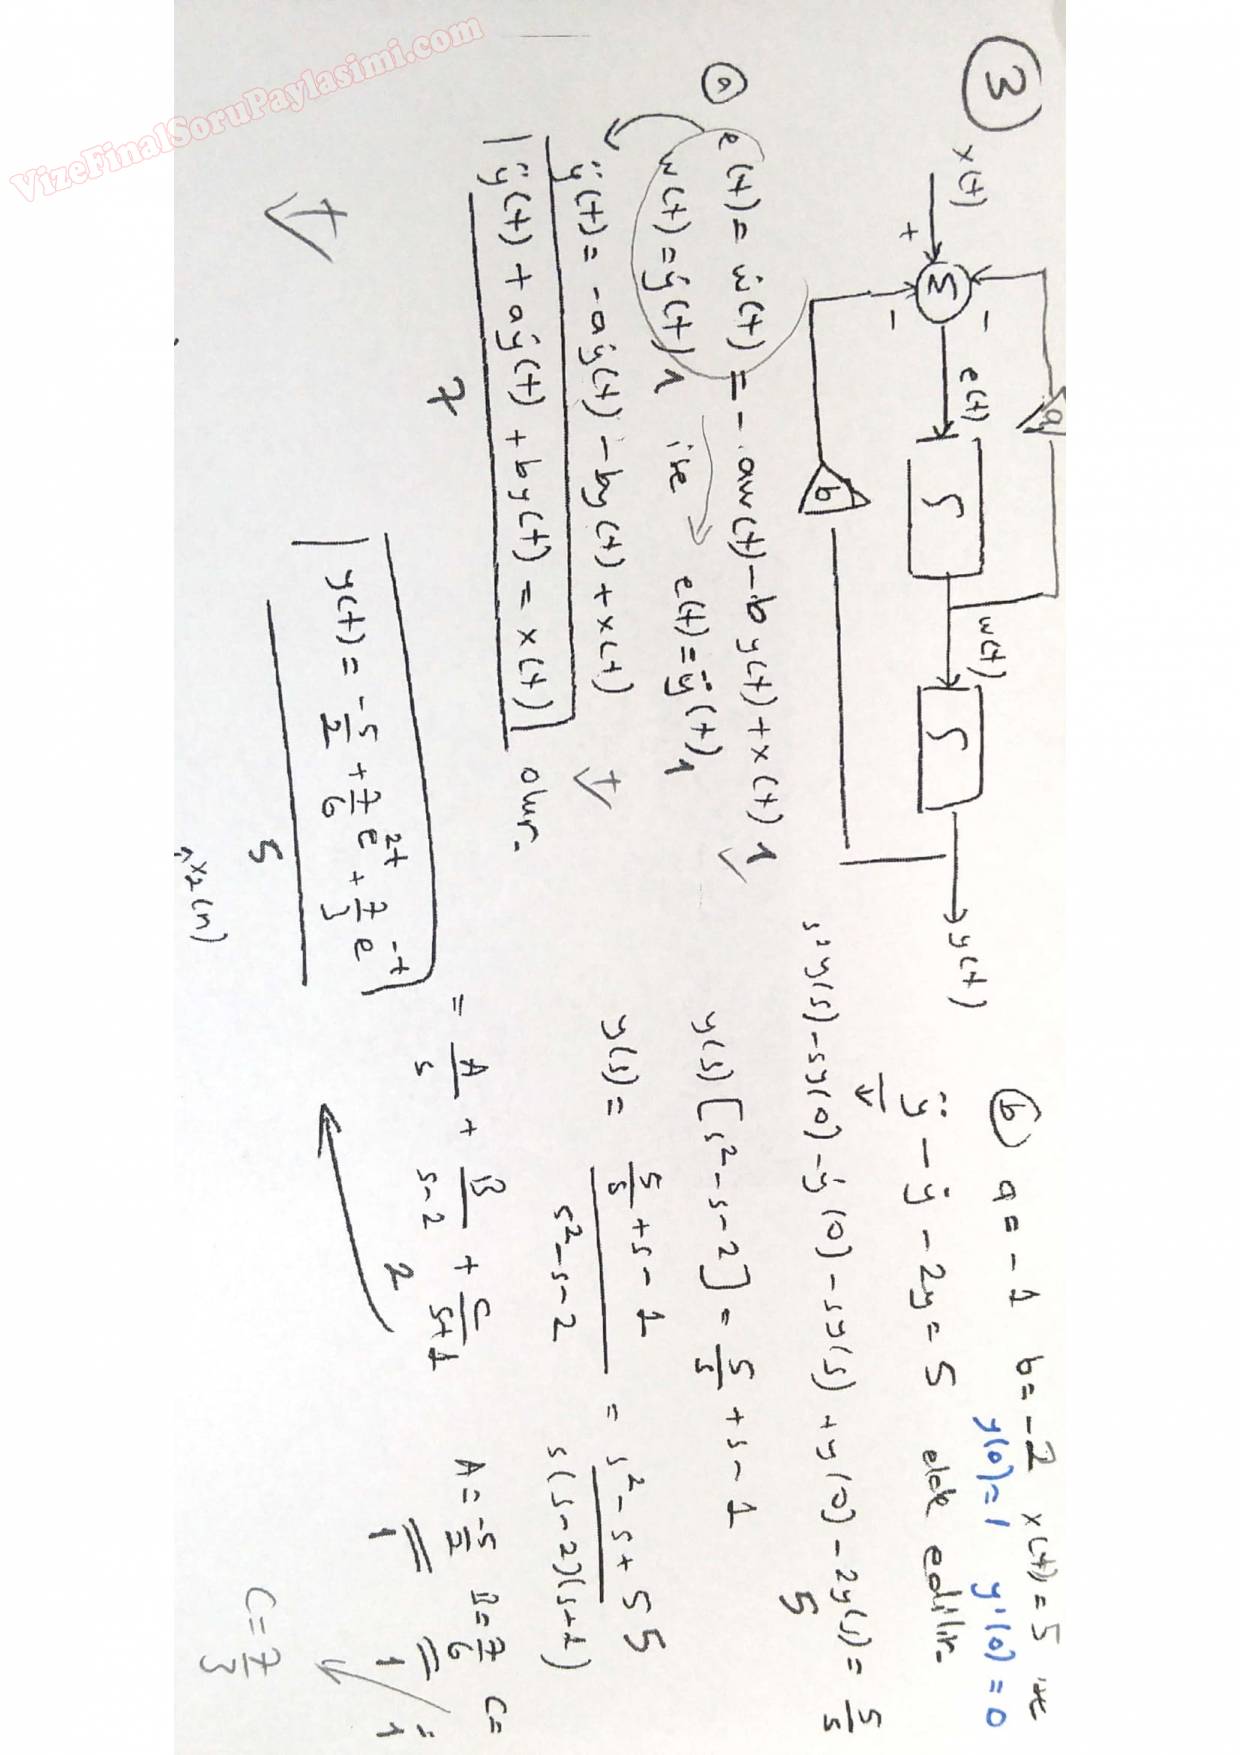 VizeFinalSoruPaylasimi.com
③
x(t)
+
Σ
−
−
e(t)
∫
w(t)
∫
y(t)
a
b
ⓐ e(t) = ẇ(t) = - aw(t) - b y(t) + x(t) 1
w(t) = ẏ(t) 1 ise e(t) = ÿ(t) 1
ÿ(t) = -aẏ(t) - by(t) + x(t)
ÿ(t) + aẏ(t) + by(t) = x(t) olur.
7
ⓑ a = -1 b = -2 x(t) = 5
y(0)=1 y'(0)=0
ÿ - ẏ - 2y = 5 elde edilir.
s²y(s) - sy(0) - ẏ(0) - sy(s) + y(0) - 2y(s) = 5/s
5
y(s) [s² - s - 2] = 5/s + s - 1
y(s) = (5/s + s - 1)/(s² - s - 2) = (s² - s + 5)/(s(s-2)(s+1)) 5
= A/s + B/(s-2) + C/(s+1) A = -5/2 B = 7/6 C =
2 1 1 1
C = 7/3
y(t) = -5/2 + 7/6 e^2t + 7/3 e^-t
5
x2(n)